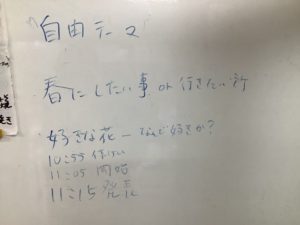 自由テーマ
春にしたい事 or 行きたい所
好きな花 ー なんで好きか?
10:55
11:05 開始
11:15 発表
焼き